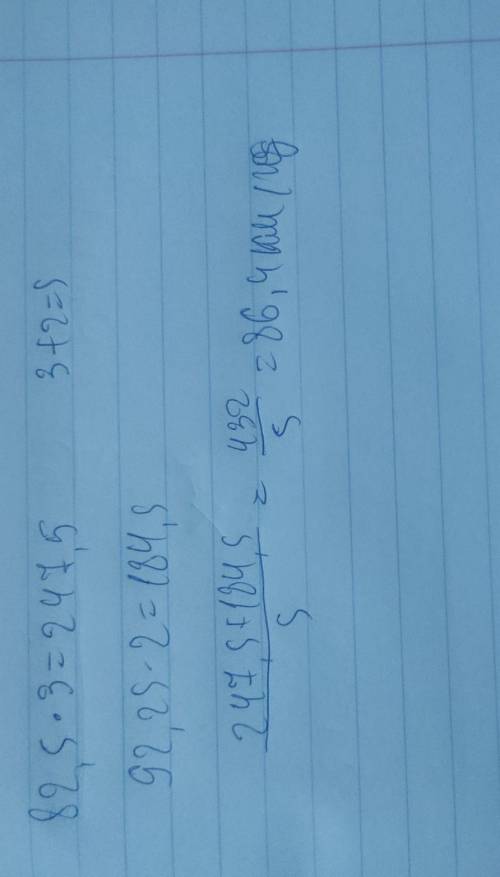 82,5 · 3 = 247,5 3+2=5
92,25 · 2 = 184,5
247,5+184,5 / 5 = 432 / 5 = 86,4 км/год